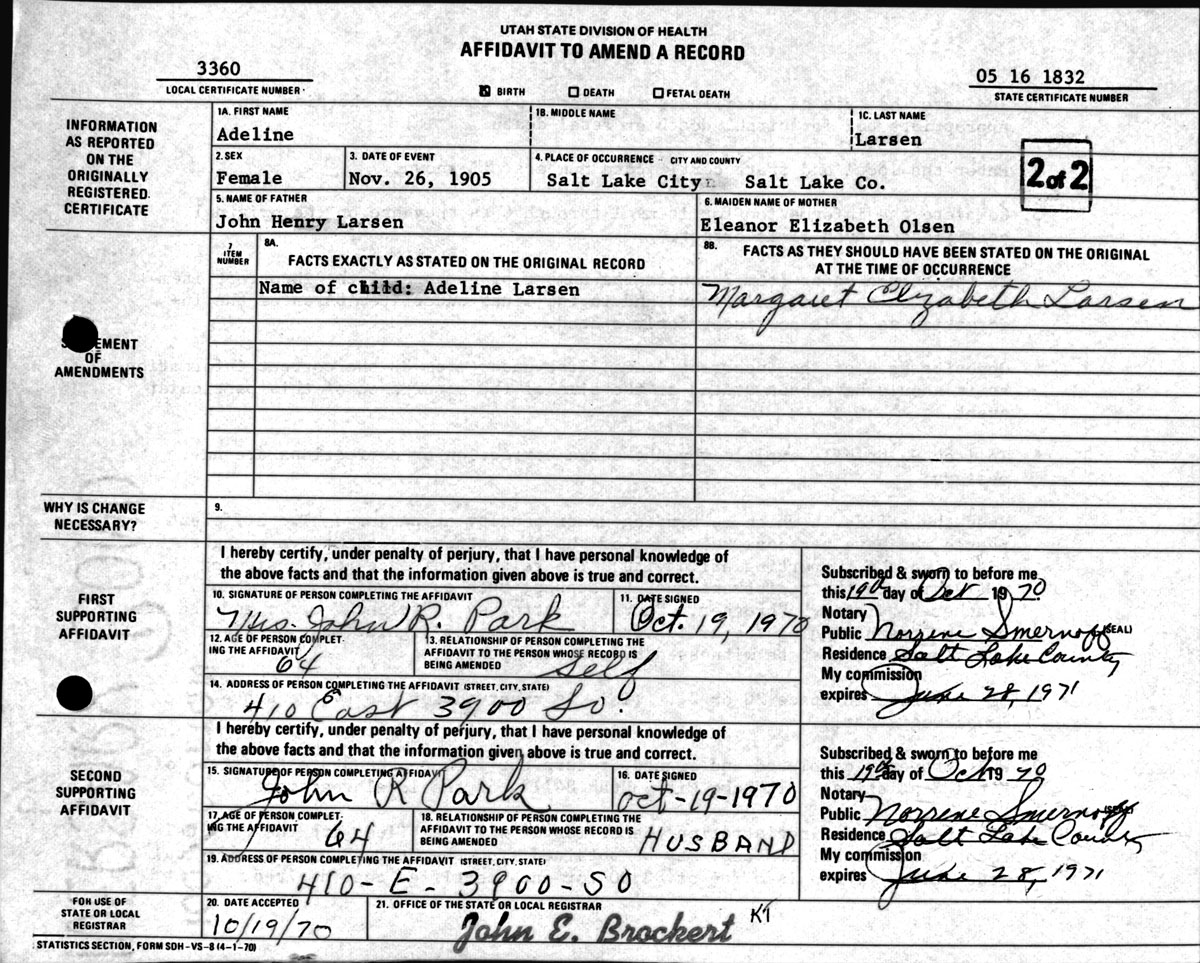 UTAH STATE DIVISION OF HEALTH
AFFIDAVIT TO AMEND A RECORD
3360
LOCAL CERTIFICATE NUMBER
BIRTH DEATH FETAL DEATH
05 16 1832
STATE CERTIFICATE NUMBER
INFORMATION
AS REPORTED
ON THE
ORIGINALLY
REGISTERED
CERTIFICATE
1A. FIRST NAME 1B. MIDDLE NAME 1C. LAST NAME
Adeline Larsen
2. SEX 3. DATE OF EVENT 4. PLACE OF OCCURRENCE - CITY AND COUNTY
Female Nov. 26, 1905 Salt Lake City Salt Lake Co.
2 of 2
5. NAME OF FATHER 6. MAIDEN NAME OF MOTHER
John Henry Larsen Eleanor Elizabeth Olsen
STATEMENT
OF
AMENDMENTS
7
ITEM
NUMBER
8A.
FACTS EXACTLY AS STATED ON THE ORIGINAL RECORD
8B. FACTS AS THEY SHOULD HAVE BEEN STATED ON THE ORIGINAL
AT THE TIME OF OCCURRENCE
Name of child: Adeline Larsen Margaret Elizabeth Larsen
WHY IS CHANGE
NECESSARY?
9.
FIRST
SUPPORTING
AFFIDAVIT
I hereby certify, under penalty of perjury, that I have personal knowledge of
the above facts and that the information given above is true and correct.
10. SIGNATURE OF PERSON COMPLETING THE AFFIDAVIT 11. DATE SIGNED
Mrs. John R. Park Oct. 19, 1970
12. AGE OF PERSON COMPLET-
ING THE AFFIDAVIT
64
13. RELATIONSHIP OF PERSON COMPLETING THE
AFFIDAVIT TO THE PERSON WHOSE RECORD IS
BEING AMENDED
Self
14. ADDRESS OF PERSON COMPLETING THE AFFIDAVIT (STREET, CITY, STATE)
410 East 3900 So.
Subscribed & sworn to before me
this 19th day of Oct 1970
Notary
Public Norrene Smernoff (SEAL)
Residence Salt Lake County
My commission
expires June 28, 1971
SECOND
SUPPORTING
AFFIDAVIT
I hereby certify, under penalty of perjury, that I have personal knowledge of
the above facts and that the information given above is true and correct.
15. SIGNATURE OF PERSON COMPLETING AFFIDAVIT 16. DATE SIGNED
John R Park Oct-19-1970
17. AGE OF PERSON COMPLET-
ING THE AFFIDAVIT
64
18. RELATIONSHIP OF PERSON COMPLETING THE
AFFIDAVIT TO THE PERSON WHOSE RECORD IS
BEING AMENDED
HUSBAND
19. ADDRESS OF PERSON COMPLETING THE AFFIDAVIT (STREET, CITY, STATE)
410-E-3900-SO
Subscribed & sworn to before me
this 19th day of Oct 1970
Notary
Public Norrene Smernoff (SEAL)
Residence Salt Lake County
My commission
expires June 28, 1971
FOR USE OF
STATE OR LOCAL
REGISTRAR
20. DATE ACCEPTED 21. OFFICE OF THE STATE OR LOCAL REGISTRAR
10/19/70 John E. Brockert KT
STATISTICS SECTION, FORM SDH-VS-8 (4-1-70)